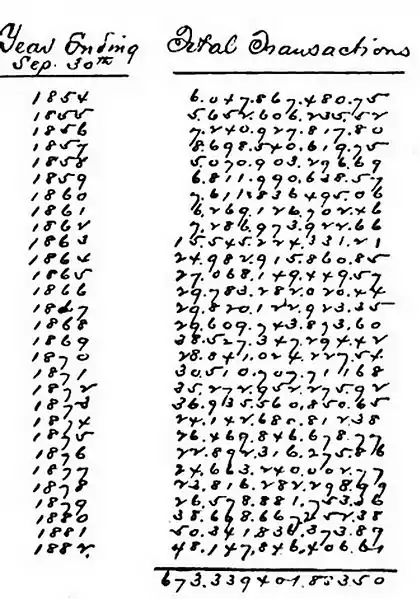 Year Ending Total Transactions
Sep. 30th
1854 6.047.867.480.75
1855 5.652.606.235.52
1856 7.240.927.817.80
1857 8.698.540.619.75
1858 5.070.903.296.69
1859 6.811.990.638.57
1860 7.611.836.495.06
1861 6.269.126.702.46
1862 7.286.973.922.66
1863 15.545.224.331.21
1864 24.982.915.860.85
1865 27.068.149.449.57
1866 29.783.282.020.44
1867 29.820.122.923.35
1868 29.609.743.873.60
1869 38.527.347.294.42
1870 28.841.024.227.54
1871 30.510.707.711.68
1872 35.272.952.275.92
1873 36.935.560.850.65
1874 24.142.680.812.38
1875 26.469.846.678.77
1876 22.892.316.275.86
1877 24.663.240.002.77
1878 23.816.282.298.99
1879 26.578.881.753.36
1880 38.698.667.252.38
1881 50.341.836.373.87
1882 48.147.846.406.61
673.339401.83350